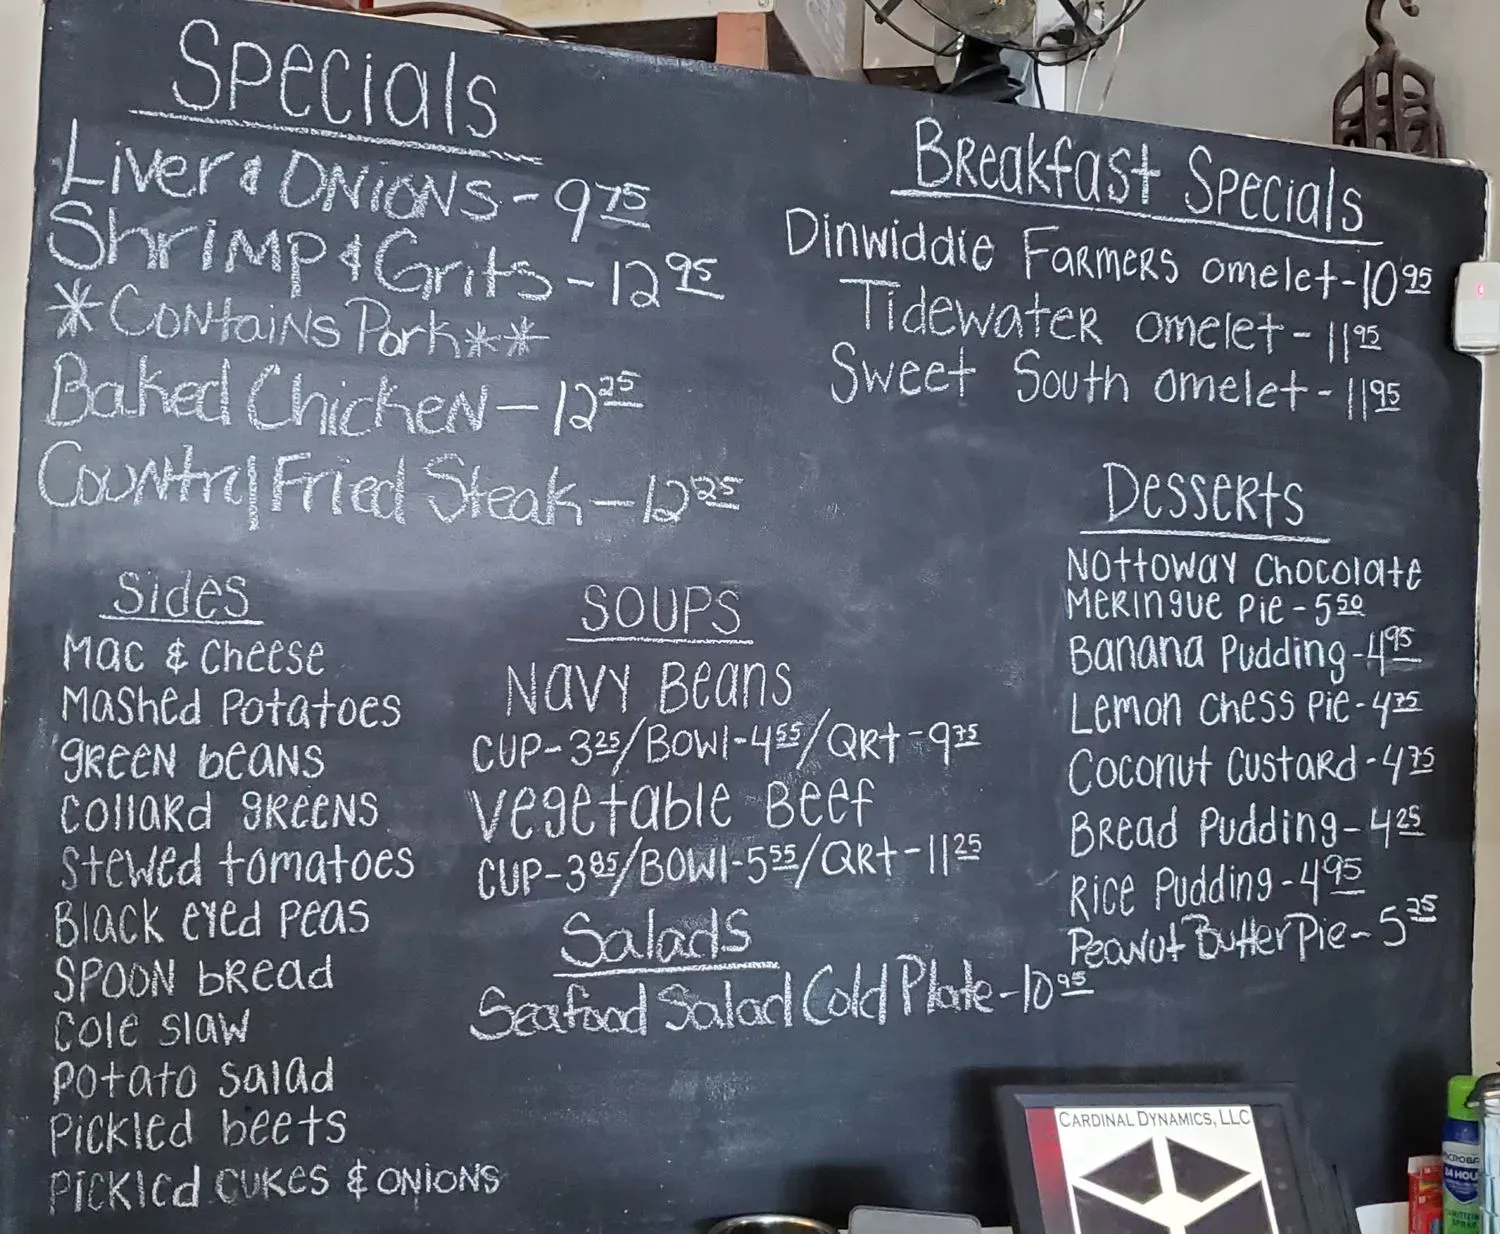 Specials
Liver & Onions - 9 75
Shrimp & Grits - 12 95
*Contains Pork**
Baked Chicken - 12 25
Country Fried Steak - 12 25
Breakfast Specials
Dinwiddie Farmers omelet - 10 95
Tidewater omelet - 11 95
Sweet South omelet - 11 95
Sides
Mac & Cheese
Mashed Potatoes
green beans
Collard greens
Stewed tomatoes
Black eyed Peas
Spoon bread
Cole slaw
Potato salad
Pickled beets
Pickled cukes & onions
SOUPS
Navy Beans
CUP - 3 25 / BOWl - 4 55 / QRt - 9 75
Vegetable Beef
CUP - 3 85 / BOWl - 5 55 / QRt - 11 25
Salads
Seafood Salad Cold Plate - 10 95
Desserts
Nottoway Chocolate
Meringue Pie - 5 50
Banana Pudding - 4 95
Lemon Chess Pie - 4 75
Coconut Custard - 4 75
Bread Pudding - 4 25
Rice Pudding - 4 95
Peanut Butter Pie - 5 25
CARDINAL DYNAMICS, LLC
24 HOU